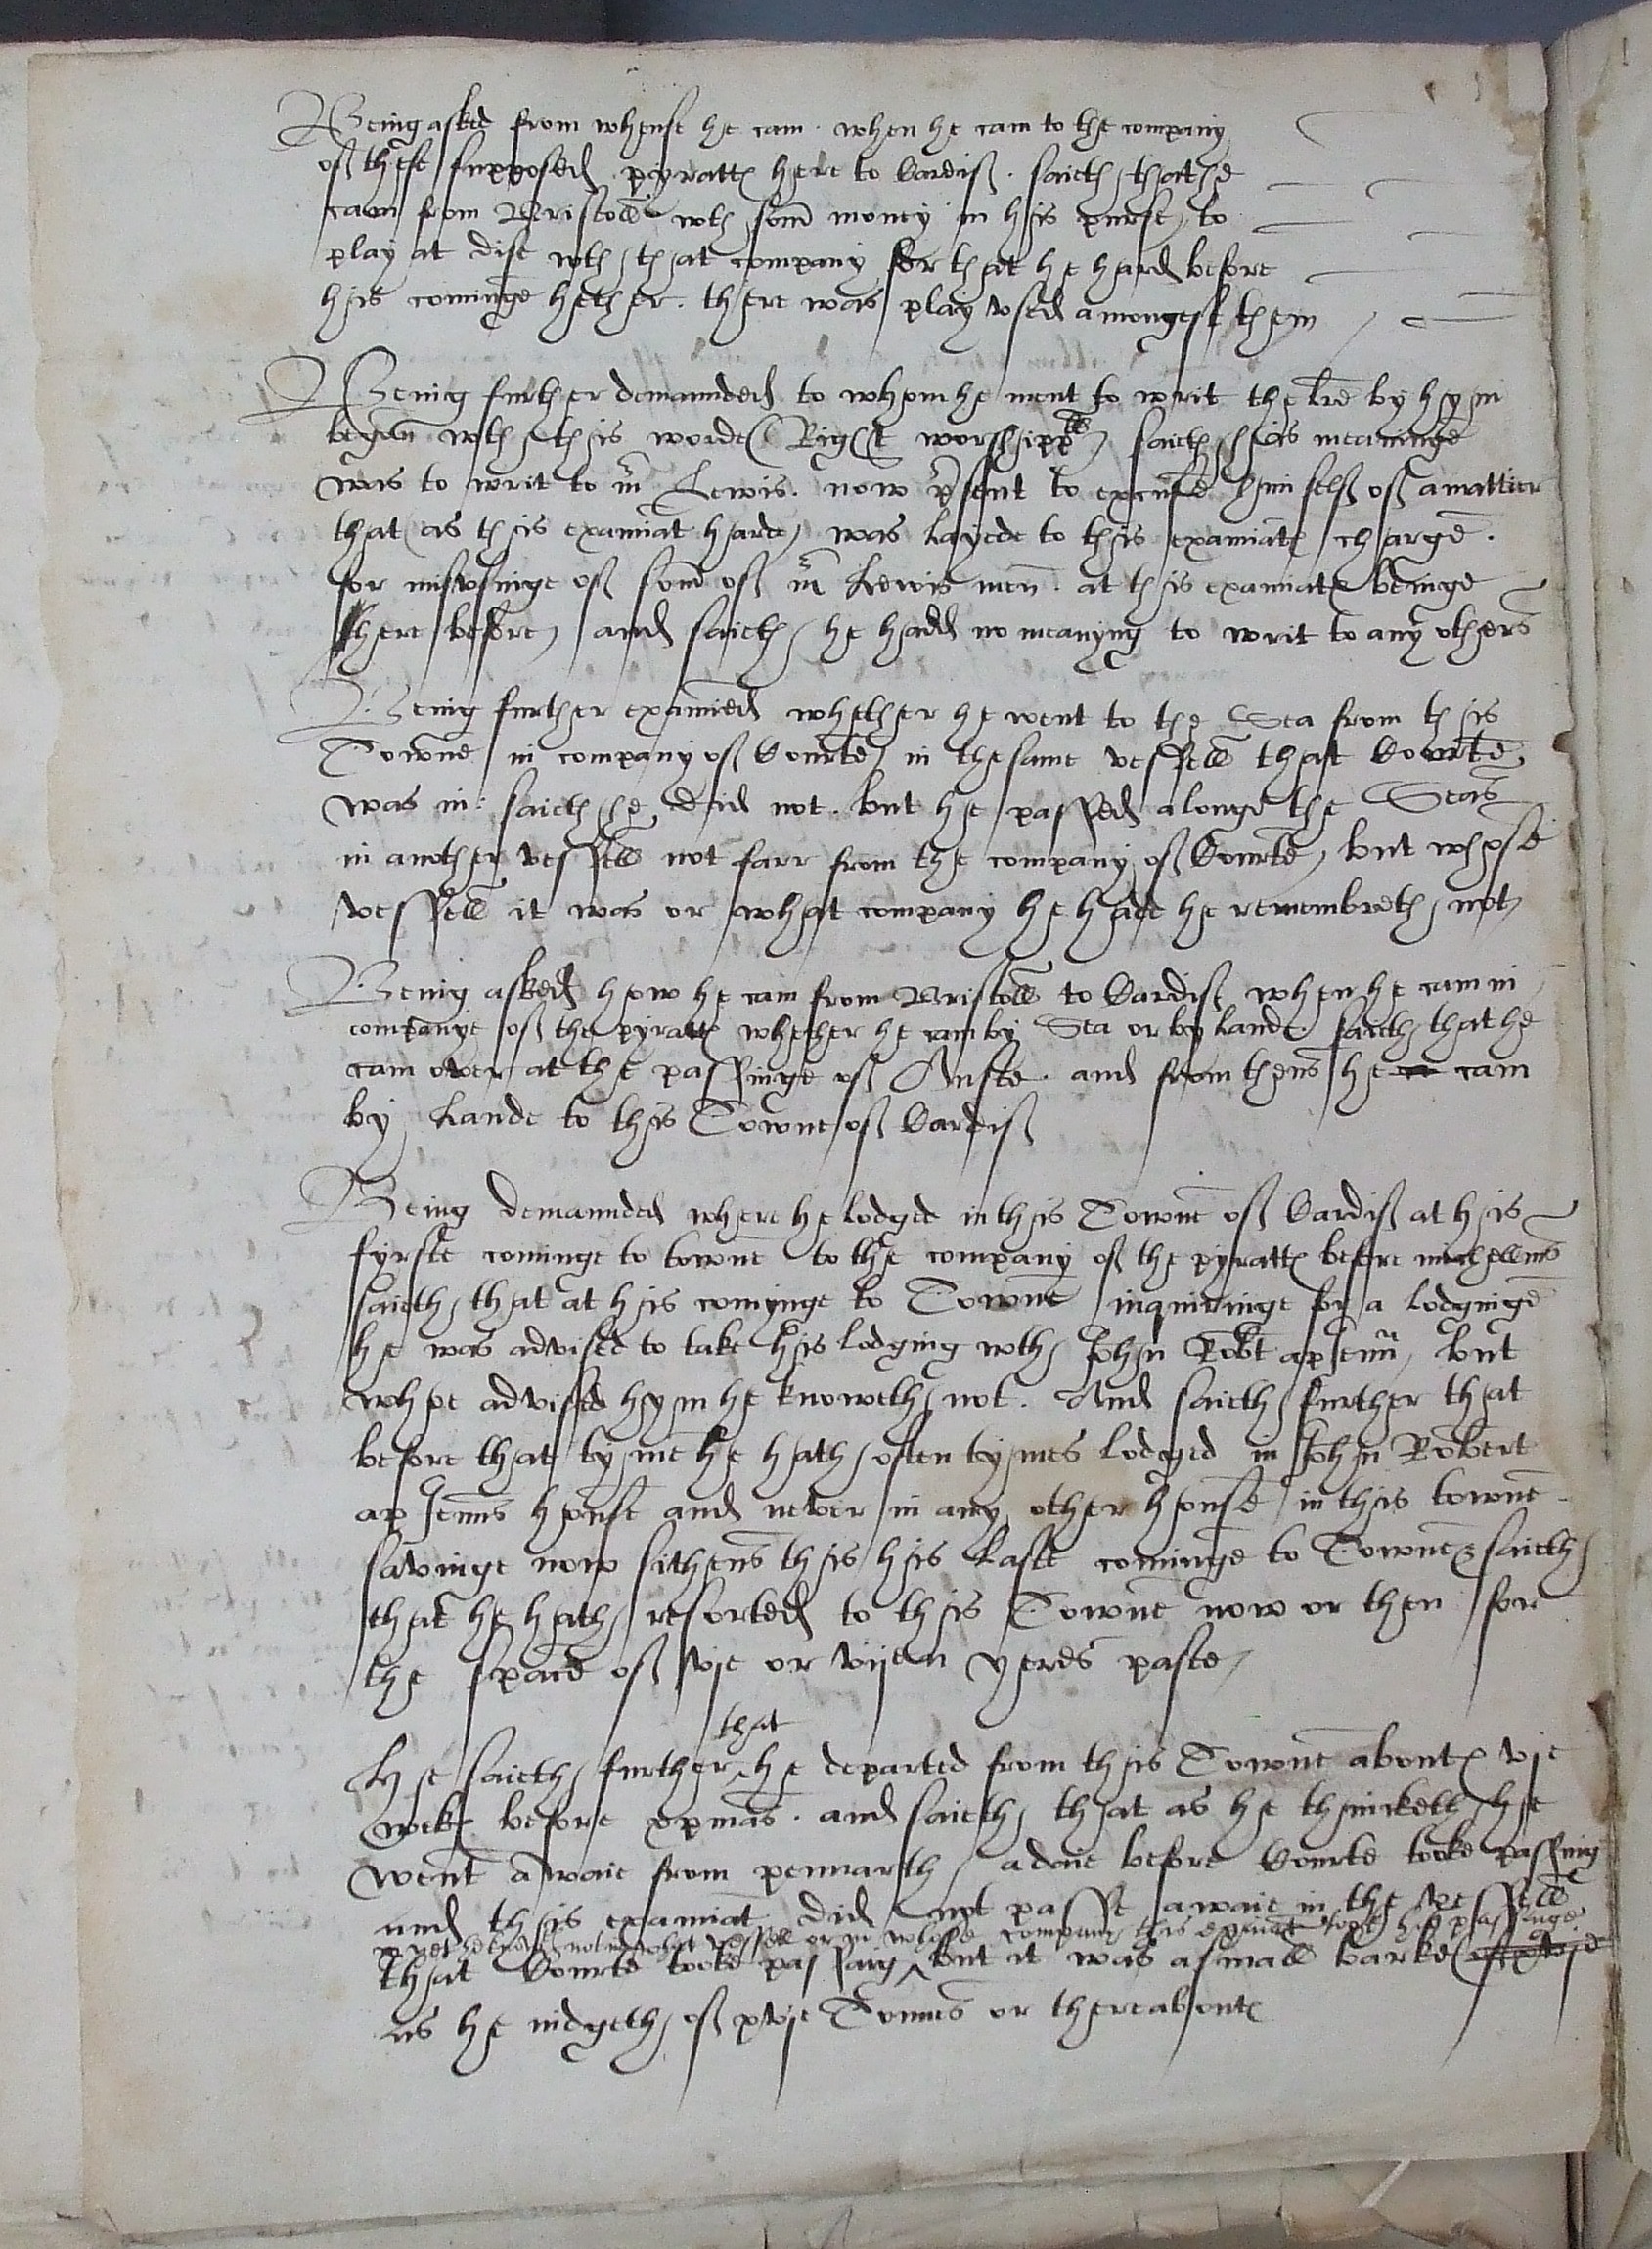 Being asked from whense he cam when he cam to the company
of these supposed pyratts here to Cardif. saieth that he
cam from Bristoll wth som money in his purse, to
play at dise wth that company for that he hard before
his cominge hether. there was play vsed amongest them
Being further demaunded to whom he ment to writ the lre by hym
begun wth this worde (Right worshippll) saieth his meaninge
was to writ to mr Lewis. now psent to excuse him self of a mattier
that (as this examiat harde) was layede to this examiats charge.
for misvsinge of som of mr Lewis men. at this examiats beinge
here before, and saieth he hadd no meanyng to writ to any others
Being further examied whether he went to the Sea from this
Towne in company of Courte, in the same vessell that Courte
was in: saieth he did not. but he passed alonge the Seas
in another vessell not farr from the company of Courte, but whose
vessell it was or what company he hade he remembreth not
Being asked how he cam from Bristoll to Cardif when he cam in
companye of the pyratts whether he cam by Sea or by lande. saieth that he
cam over at the passinge of Auste. and from thens he cam
by Lande to this Towne of Cardif
Being demaunded where he lodged in this Towne of Cardif at his
fyrste cominge to towne to the company of the pyratts before michellms
saieth that at his comynge to Towne inquiringe for a lodginge
he was advised to take his lodging wth John Robt ap Ieun, but
whoe advised hym he knoweth not. And saieth further that
before that tyme he hath often tymes lodged in John Robert
ap Ieuns house and never in any other house in this towne
savinge now sithens this his laste cominge to Towne & saieth
that he hath resorted to this Towne now or then for
the space of vje or vijen yeres paste,
that
He saieth further ^ he departed from this Towne abouts vje
weks before xpmas. and saieth that as he thinketh he
went awaie from pennarth a daie before Courte tooke passing
and this examiat did not passe awaie in the vessell
yet he knoweth not in what vessell or in whose company this examiat tooke his passinge
that Courte tooke passing ^ but it was a small barke
as he iudgeth of xvje Tonnes or thereabouts